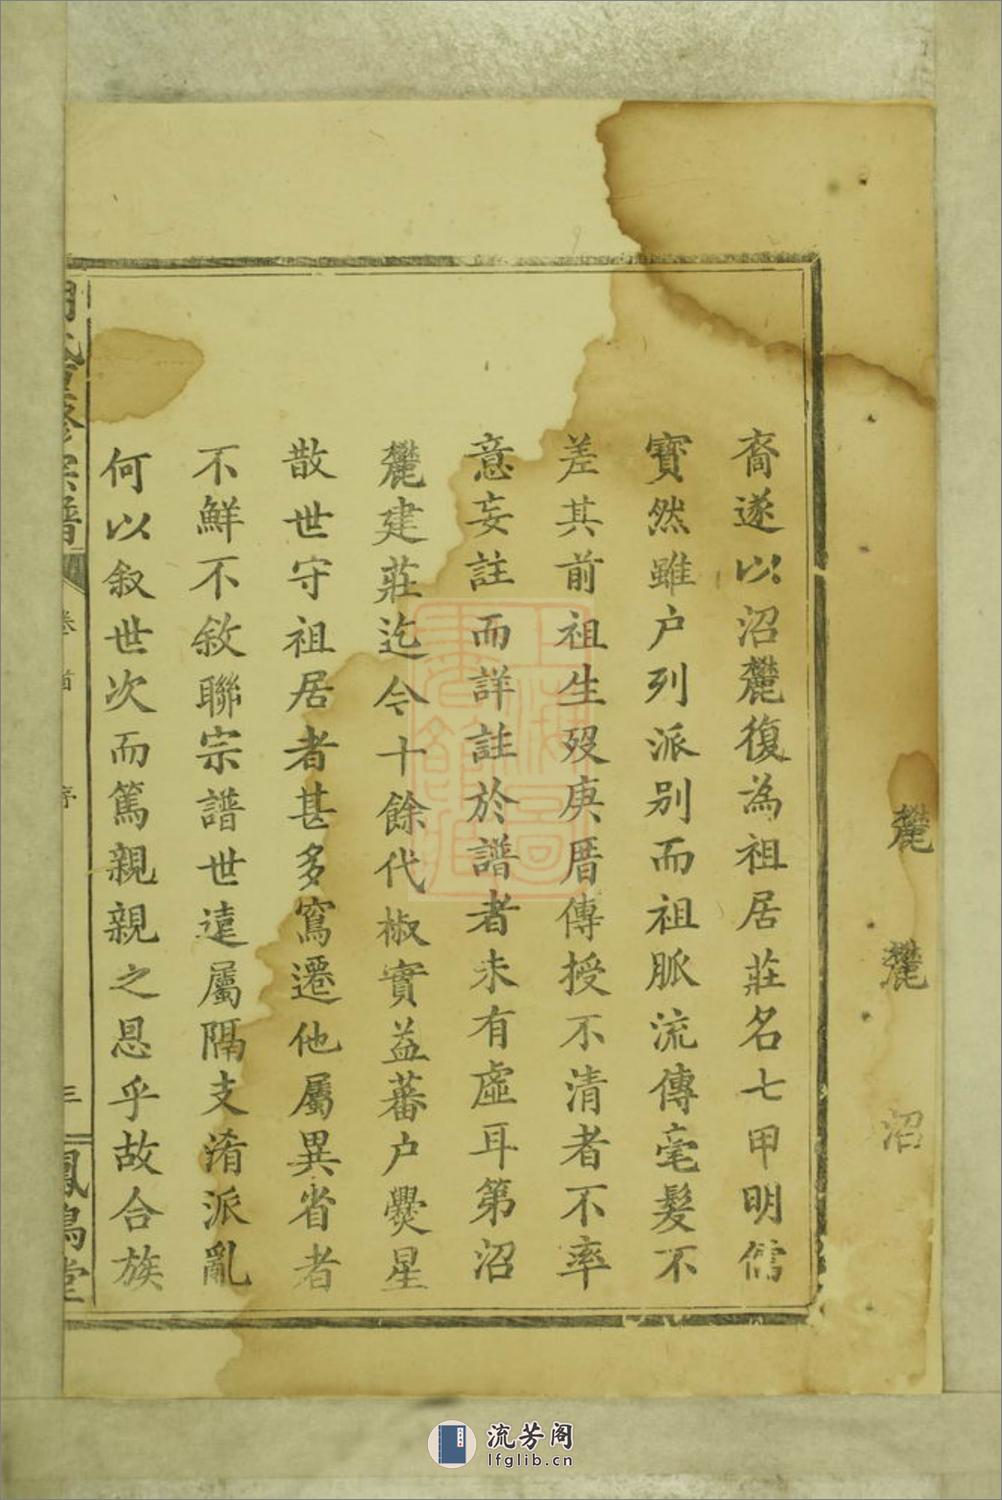 裔遂以沼麓復為祖居莊名七甲明儒
寳然雖户列派别而祖脈流傳毫髮不
差其前祖生殁庚厝傳授不清者不率
意妄註而詳註於譜者未有虛耳第沼
麓建莊迄今十餘代椒實益蕃户爨星
散世守祖居者甚多窵遷他屬異省者
不鮮不敘聯宗譜世遠屬隔支淆派亂
何以叙世次而篤親親之恩乎故合族
宗譜
卷首
序
三
鳳鳴堂
麓
麓
沼
上海圖書館藏
流芳阁
lfglib.cn